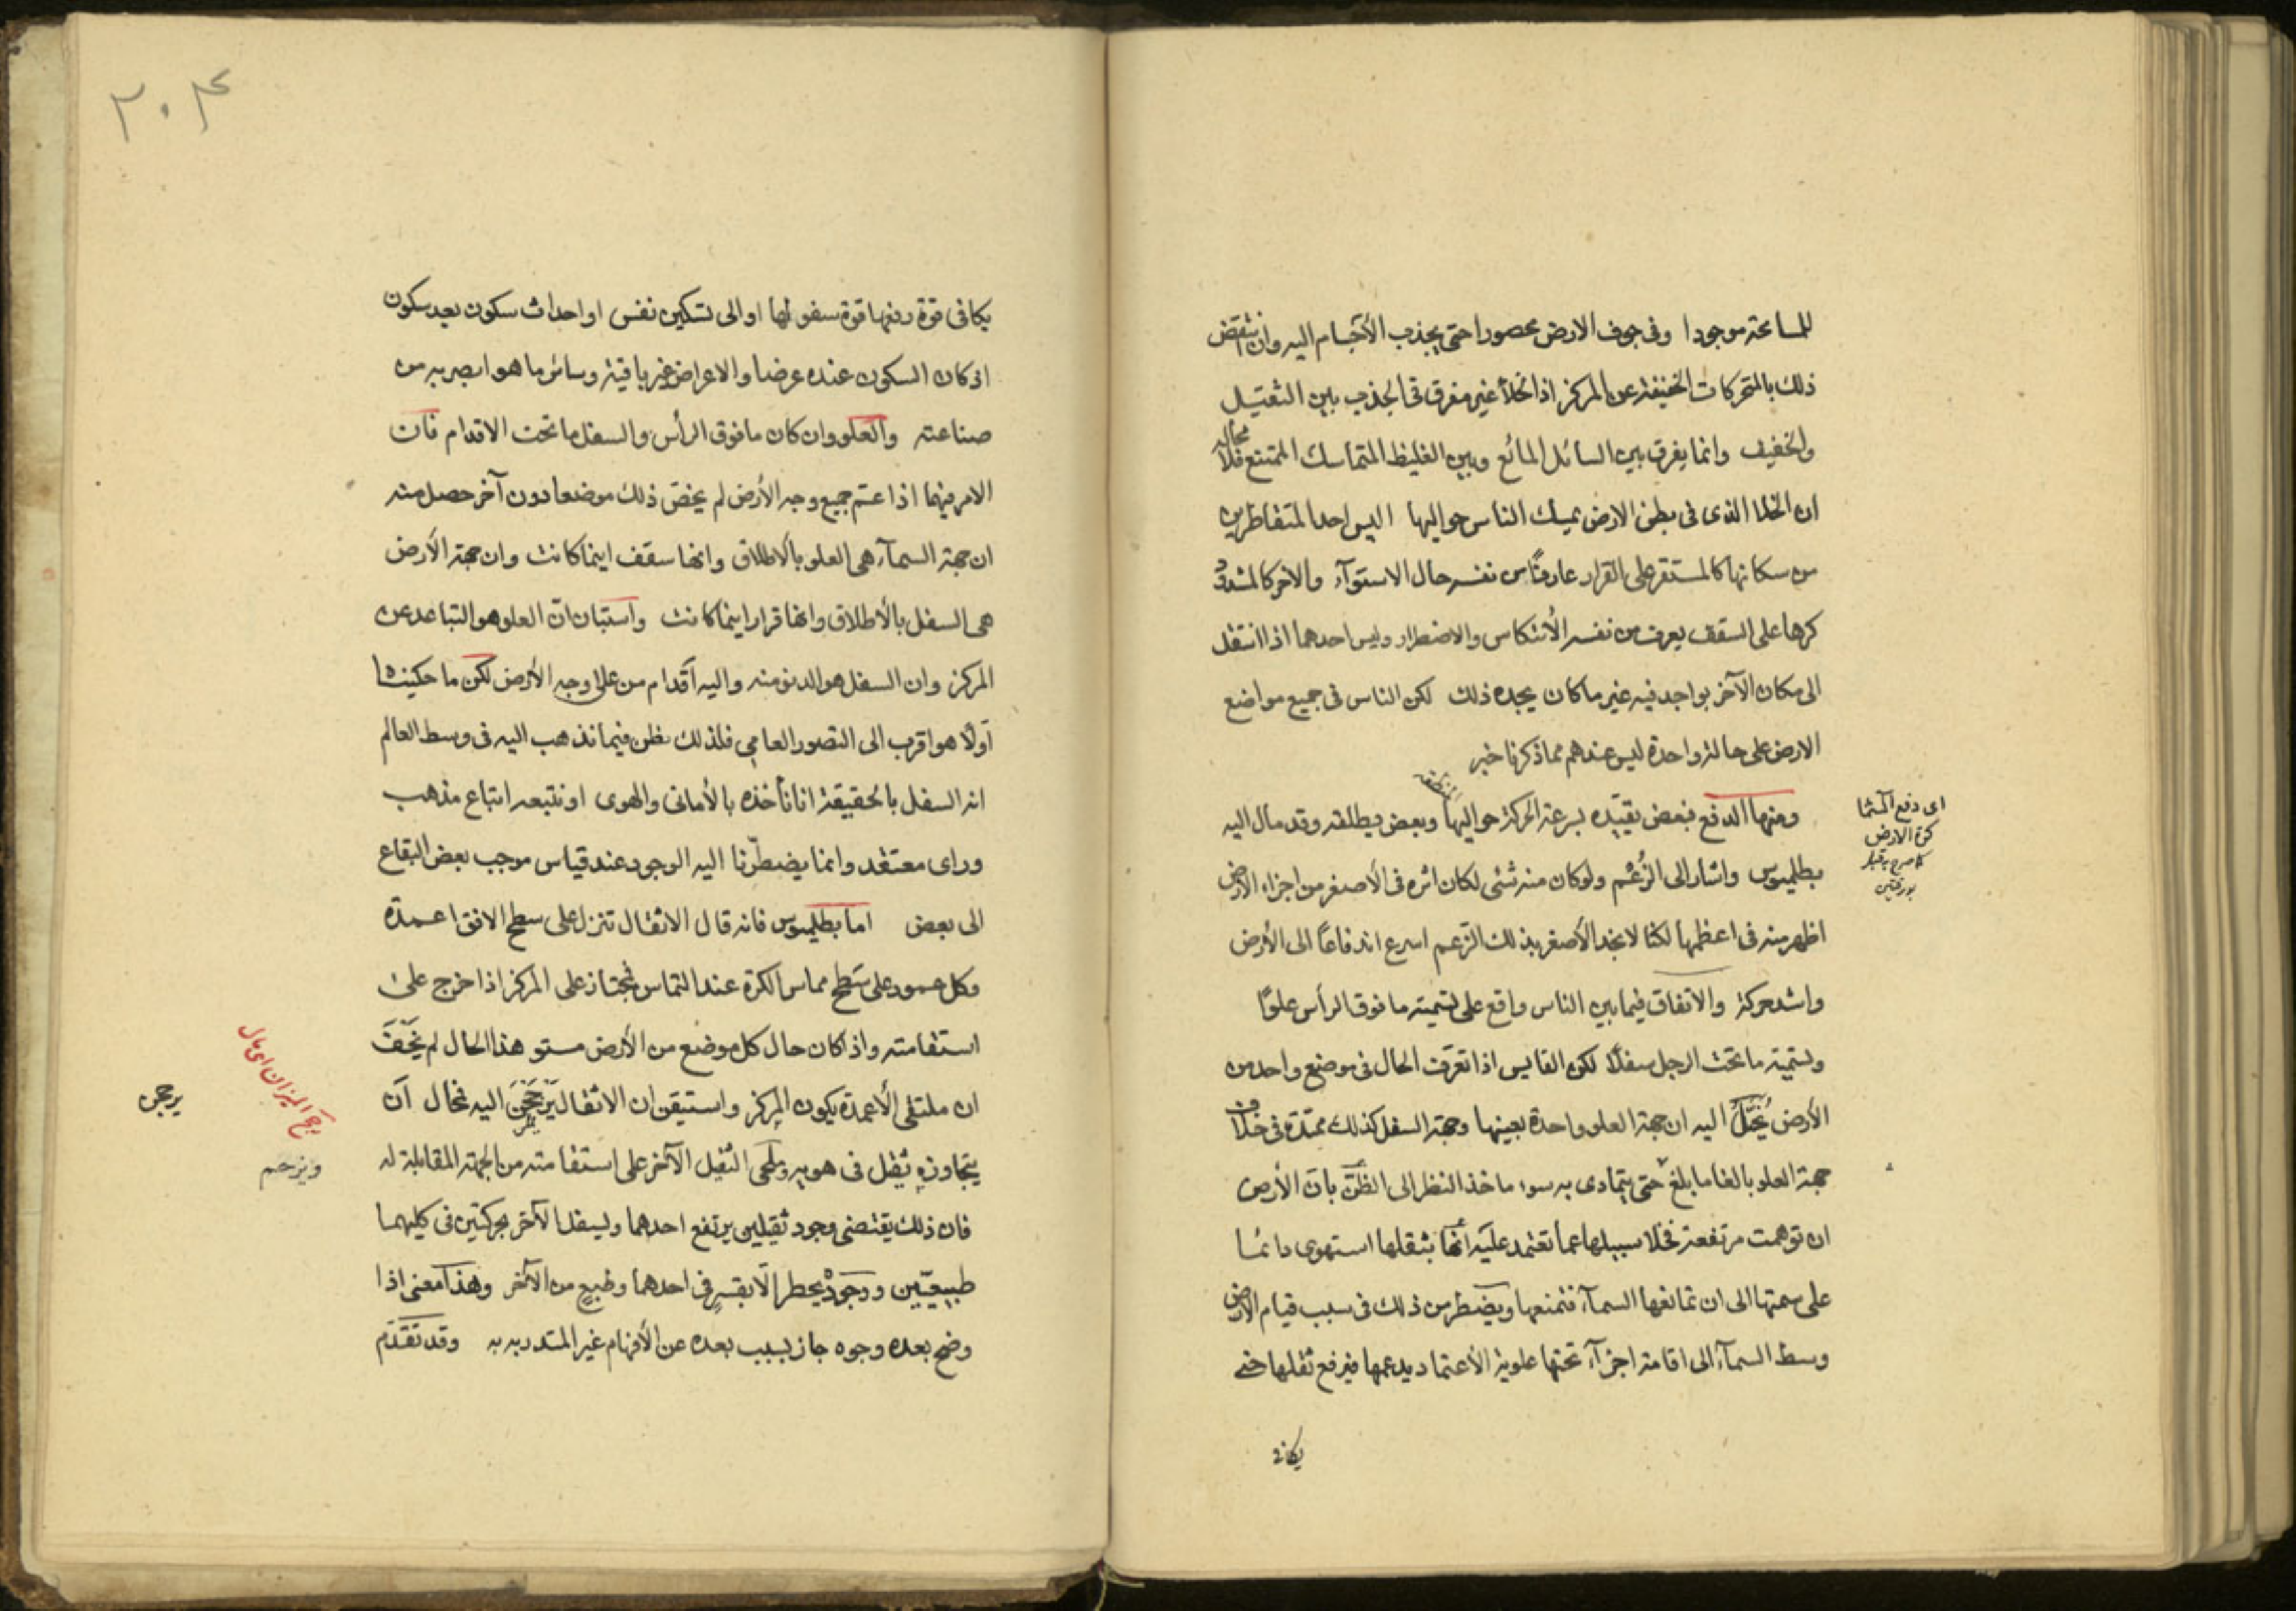 للمساحته موجودا وفى جوف الارض محصورا حتى يجذب الأجسام اليه وان ينتقض
ذلك بالمتحركات الخفيفة عن المركز اذ الخلأ غير مفرق فى الجذب بين الثقيل
والخفيف وانما يفرق بين السائل المائع وبين الغليظ المتماسك الممتنع فلا محالة
ان الخلا الذى فى بطن الارض يمسك الناس حواليها اليس احد المتقاطرين
من سكانها كالمستقر على القرار عارفًا من نفسه حال الاستوآء والاخر كالمشدود
كرها على السقف يعرف من نفسه الأنتكاس والاضطرار وليس احدهما اذا انتقل
الى مكان الآخر بواجد فيه غير ما كان يجده ذلك لكن الناس فى جميع مواضع
الارض على حالة واحدة ليس عندهم مما ذكرنا خبر
ومنها الدفع فبعض يقيّده بسرعة الحركة حواليها وبعض يطلقه وقد مال اليه
بطلميوس واشار الى الزُعم ولو كان منه شئى لكان اثره فى الأصغر من اجزاء الارض
اظهر منه فى اعظمها لكنا لا نجد الأصغر بذلك الزعم اسرع اندفاعًا الى الأرض
واشد حركة والاتفاق فيما بين الناس واقع على تسمية ما فوق الرأس علوًا
وتسمية ما تحت الرجل سفلًا لكن القايس اذا تعرّف الحال فى موضع واحد من
الأرض يُخَيَّلُ اليه ان جهة العلو واحدة بعينها وجهة السفل كذلك ممتدة فى خلاف
جهة العلو بالغا ما بلغ حتى يتمادى به سوء ماخذ النظر الى الظَنّ بان الأرض
ان توهمت مرتفعة فخلا سبيلها عما تعتمد عليه أنها بثقلها استهوى دائما
على سمتها الى ان تمانعها السمآء فتمنعها ويضطر من ذلك فى سبب قيام الارض
وسط السمآء الى اقامة اجزآء تحتها علوية الأعتماد يدعمها فيرفع ثقلها حتى
يكافى
اى دفع السما
كرة الارض
كما صرح به قبل
بورقتين
٣٠٤
يكافى قوة رفعها قوة سفولها او الى تسكين نفس او احداث سكون بعد سكون
اذ كان السكون عنده عرضا والاعراض غير باقية وسائر ما هو ابصر به من
صناعته والعلو وان كان ما فوق الرأس والسفل ما تحت الاقدام فان
الامر فيهما اذا عتم جميع وجه الأرض لم يخصّ ذلك موضعا دون آخر حصل منه
ان جهة السمآء هى العلو بالاطلاق وانها سقف اينما كانت وان جهة الأرض
هى السفل بالأطلاق وانها قرار اينما كانت واستبان انّ العلو هو التباعد عن
المركز وان السفل هو الدنو منه واليه اقدام من على وجه الأرض لكن ما حكيناه
اولًا هو اقرب الى التصور العامى فلذلك يظن فيما نذهب اليه فى وسط العالم
انه السفل بالحقيقة انا نأخذه بالأمانى والهوى او نتبعه اتباع مذهب
وراى معتقد وانما يضطرّنا اليه الوجود عند قياس موجب بعض البقاع
الى بعض اما بطلميوس فانه قال الاثقال تنزل على سطح الافق اعمدة
وكل عمود على سطح مماس الكرة عند التماس فمجتاز على المركز اذا خرج على
استقامته واذا كان حال كل موضع من الأرض مستو هذا الحال لم يَخْفَ
ان ملتقى الأعمدة يكون المركز واستيقن ان الاثقال يَرْجَحِنّ اليه فمحال أن
يتجاوزه ثقيل فى هويه ويلقى الثقيل الآخر على استقامته من الجهة المقابلة له
فان ذلك يقتضى وجود ثقيلين يرتفع احدهما ويسفل الآخر بحركتين فى كليهما
طبيعيّتين ووجود يحظر الّا بقسرٍ فى احدهما وطبعٍ من الآخر وهذا معنى اذا
وضح بعده وجوه جاز بسبب بعده عن الأفهام غير المتدربه به وقد تقدم
رجح الميزان اى مال
يرجحن
ويزدحم